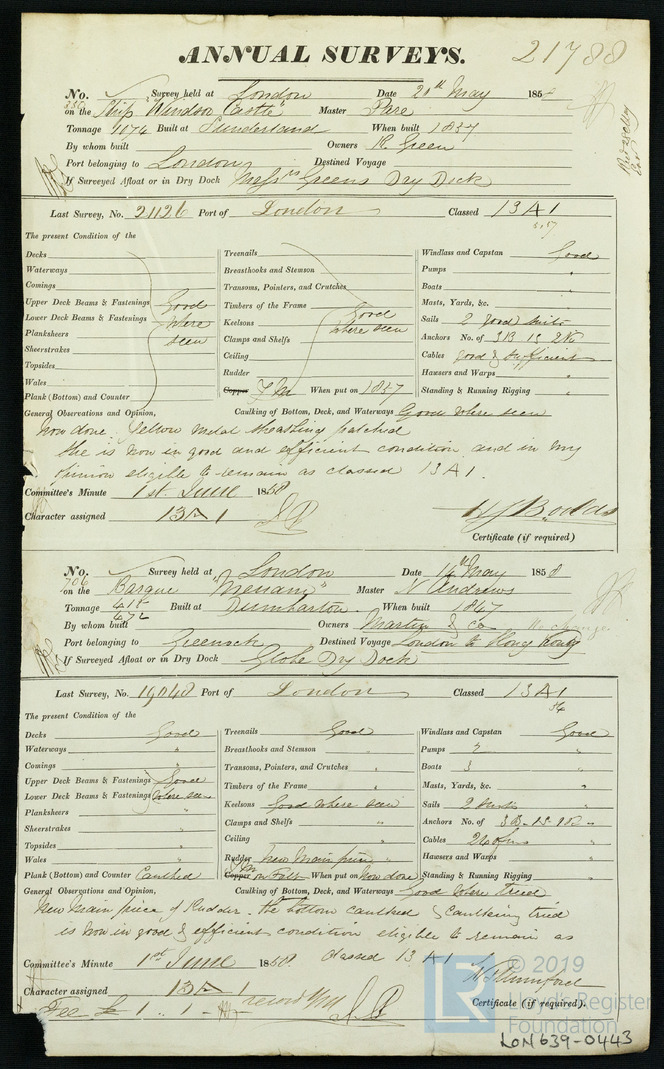 ANNUAL SURVEYS. 21788
No. Survey held at London Date 20th May 1858
on the Ship "Windsor Castle" Master Pare
Tonnage 1074 Built at Sunderland When built 1837
By whom built Owners R. Green
Port belonging to London Destined Voyage
If Surveyed Afloat or in Dry Dock Messrs Greens Dry Dock
Last Survey, No. 21126 Port of London Classed 13 A 1
The present Condition of the
Decks Treenails Windlass and Capstan Good
Waterways Breasthooks and Stemson Pumps "
Comings Transoms, Pointers, and Crutches Boats "
Upper Deck Beams & Fastenings Good Timbers of the Frame Good Masts, Yards, &c. "
Lower Deck Beams & Fastenings where Keelsons where seen Sails 2 good suits
Planksheers seen Clamps and Shelfs Anchors No. of 3B 1S 2K
Sheerstrakes Ceiling Cables good & sufficient
Topsides Rudder Hawsers and Warps "
Wales Copper Y M When put on 1857 Standing & Running Rigging "
Plank (Bottom) and Counter
General Observations and Opinion, Caulking of Bottom, Deck, and Waterways Good where seen
Now done. Yellow metal sheathing patched
She is now in good and efficient condition and in my
opinion eligible to remain as classed 13 A 1.
Committee's Minute 1st June 1858
Character assigned 13 A 1
Certificate (if required)
No. Survey held at London Date 14th May 1858
706
on the Barque "Menam" Master N Andrews
Tonnage 415 Built at Dumbarton When built 1847
472
By whom built Owners Martin & Co no change
Port belonging to Greenock Destined Voyage London to Hong Kong
If Surveyed Afloat or in Dry Dock Globe Dry Dock
Last Survey, No. 19040 Port of London Classed 13 A 1
The present Condition of the
Decks Good Treenails Good Windlass and Capstan Good
Waterways " Breasthooks and Stemson " Pumps 2 "
Comings " Transoms, Pointers, and Crutches " Boats 3 "
Upper Deck Beams & Fastenings Good Timbers of the Frame " Masts, Yards, &c. "
Lower Deck Beams & Fastenings where seen Keelsons Good where seen Sails 2 suits "
Planksheers " Clamps and Shelfs " Anchors No. of 3B. 1S. 1K "
Sheerstrakes " Ceiling " Cables "
Topsides " Rudder New Main piece Hawsers and Warps "
Wales " Copper YM on Felt When put on Now done Standing & Running Rigging "
Plank (Bottom) and Counter Caulked
General Observations and Opinion, Caulking of Bottom, Deck, and Waterways Good where tried
New Main piece of Rudder. the bottom caulked & Caulking tried
is now in good & efficient condition eligible to remain as
classed 13 A 1
Committee's Minute 1st June 1858.
Character assigned 13 A 1
Certificate (if required).
Fee £ 1 .. 1 ..
© 2019
Lloyd's Register
Foundation
LON639-0443